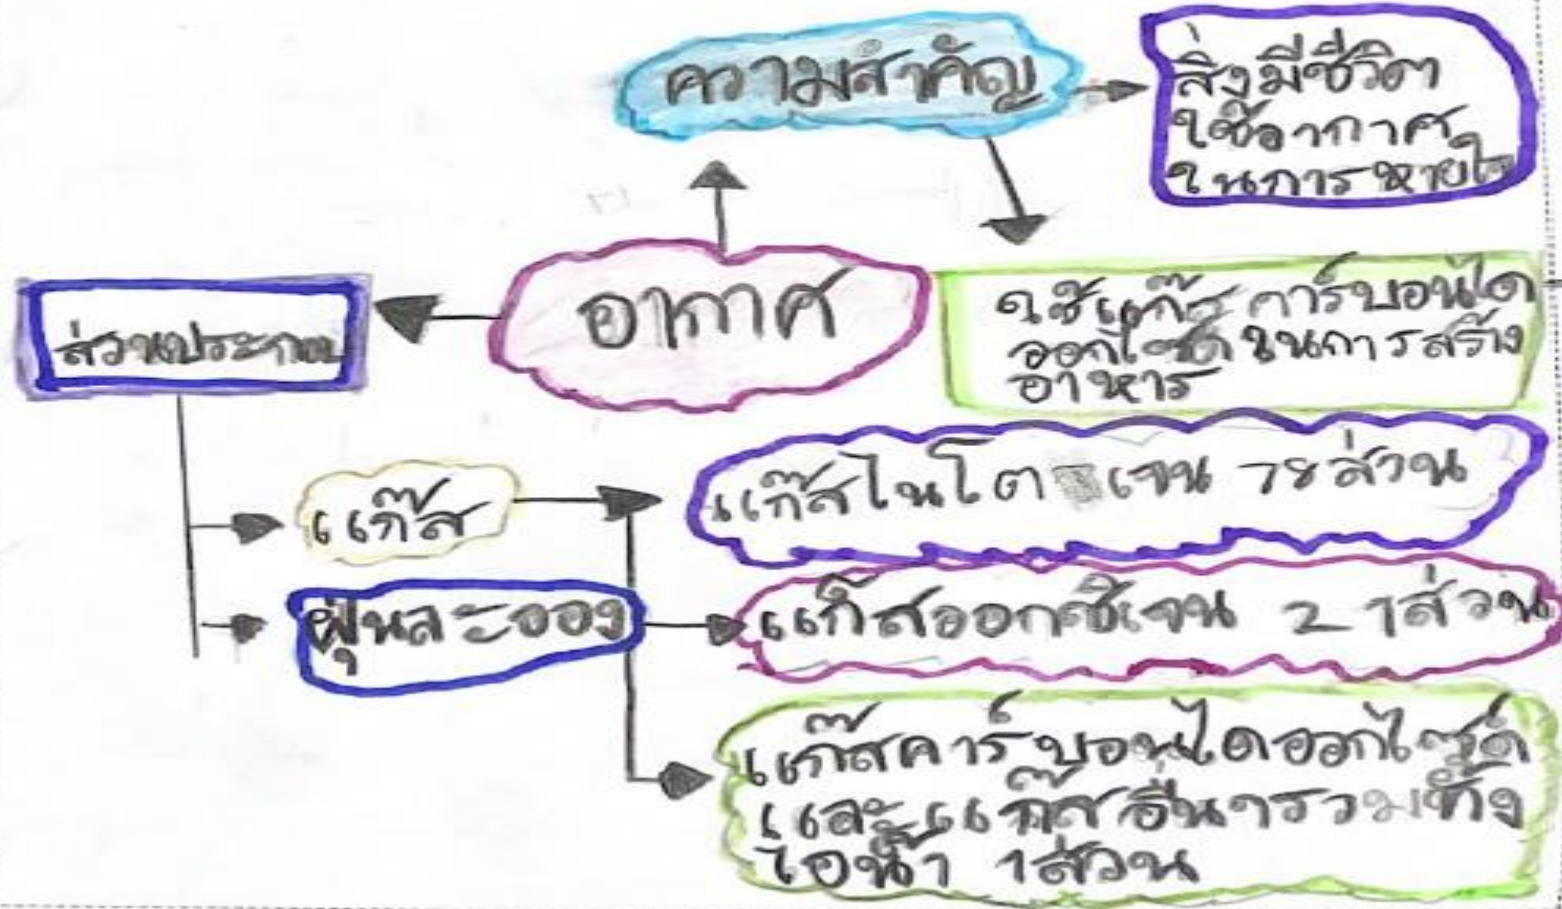 ความสำคัญ
สิ่งมีชีวิต
ใช้อากาศ
ในการหายใจ
อากาศ
ส่วนประกอบ
ใช้แก๊สคาร์บอนได
ออกไซด์ในการสร้าง
อาหาร
แก๊ส
แก๊สไนโตรเจน 78 ส่วน
ฝุ่นละออง
แก๊สออกซิเจน 21 ส่วน
แก๊สคาร์บอนไดออกไซด์
และแก๊สอื่นๆรวมทั้ง
ไอน้ำ 1 ส่วน